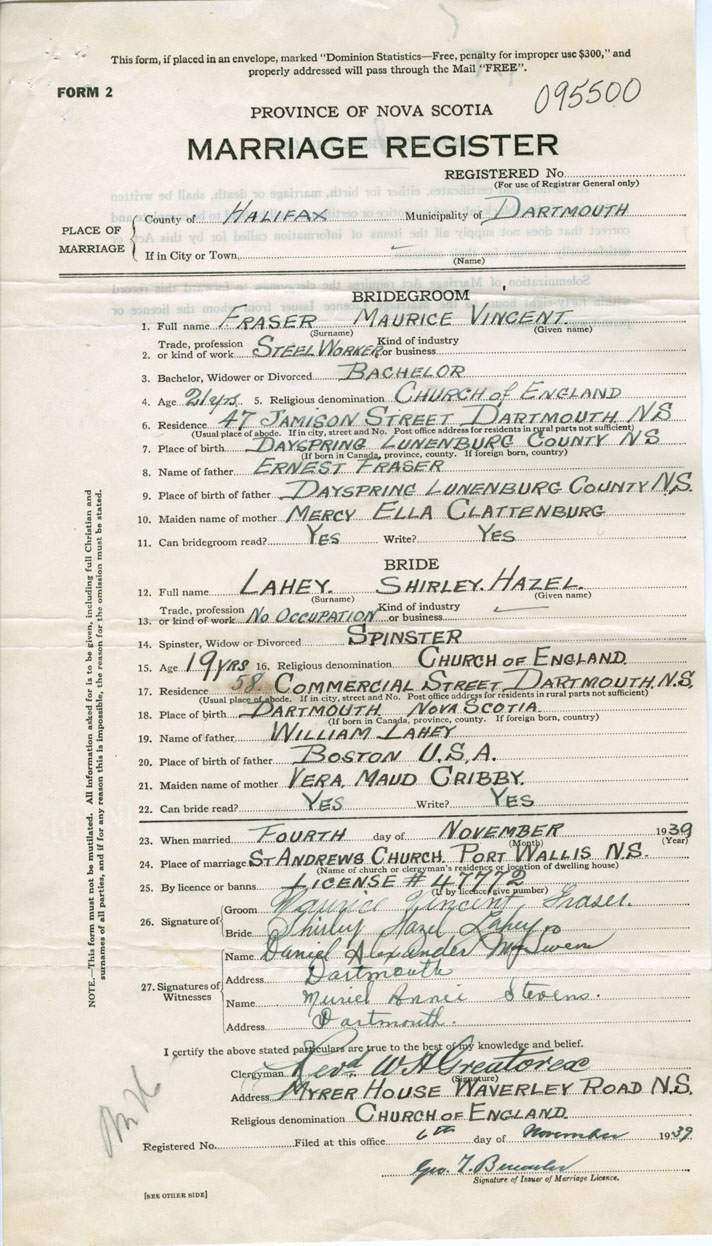 This form, if placed in an envelope, marked "Dominion Statistics—Free, penalty for improper use $300," and
properly addressed will pass through the Mail "FREE".
FORM 2
095500
PROVINCE OF NOVA SCOTIA
MARRIAGE REGISTER
REGISTERED No.
(For use of Registrar General only)
PLACE OF MARRIAGE
County of HALIFAX Municipality of DARTMOUTH
If in City or Town
(Name)
BRIDEGROOM
1. Full name FRASER MAURICE VINCENT.
(Surname) (Given name)
2. Trade, profession or kind of work STEEL WORKER Kind of industry or business
3. Bachelor, Widower or Divorced BACHELOR
4. Age 21 yrs. 5. Religious denomination CHURCH of ENGLAND
6. Residence 47 JAMISON STREET DARTMOUTH NS
(Usual place of abode. If in city, street and No. Post office address for residents in rural parts not sufficient)
7. Place of birth DAYSPRING LUNENBURG COUNTY NS
(If born in Canada, province, county. If foreign born, country)
8. Name of father ERNEST FRASER
9. Place of birth of father DAYSPRING LUNENBURG COUNTY N.S.
10. Maiden name of mother MERCY ELLA CLATTENBURG
11. Can bridegroom read? YES Write? YES
BRIDE
12. Full name LAHEY. SHIRLEY. HAZEL.
(Surname) (Given name)
13. Trade, profession or kind of work NO OCCUPATION Kind of industry or business
14. Spinster, Widow or Divorced SPINSTER
15. Age 19 YRS 16. Religious denomination CHURCH OF ENGLAND.
17. Residence 58. COMMERCIAL STREET DARTMOUTH. N.S.
(Usual place of abode. If in city, street and No. Post office address for residents in rural parts not sufficient)
18. Place of birth DARTMOUTH NOVA SCOTIA
(If born in Canada, province, county. If foreign born, country)
19. Name of father WILLIAM LAHEY
20. Place of birth of father BOSTON U.S.A.
21. Maiden name of mother VERA. MAUD CRIBBY.
22. Can bride read? YES Write? YES
23. When married FOURTH day of NOVEMBER 1939
(Month) (Year)
24. Place of marriage ST ANDREWS CHURCH. PORT WALLIS N.S.
(Name of church or clergyman's residence or location of dwelling house)
25. By licence or banns LICENSE # 47772
(If by licence give number)
26. Signature of
Groom Maurice Vincent Fraser.
Bride Shirley Hazel Lahey
27. Signatures of Witnesses
Name Daniel Alexander McSween
Address Dartmouth
Name Muriel Annie Stevens.
Address Dartmouth.
I certify the above stated particulars are true to the best of my knowledge and belief.
Clergyman Revd. W A Greatorex
(Signature)
Address MYRER HOUSE WAVERLEY ROAD N.S.
Religious denomination CHURCH OF ENGLAND.
Registered No. Filed at this office 6th day of November 1939
Geo. T.
Signature of Issuer of Marriage Licence.
[SEE OTHER SIDE]
NOTE.—This form must not be mutilated. All information asked for is to be given, including full Christian and
surnames of all parties, and if for any reason this is impossible, the reason for the omission must be stated.